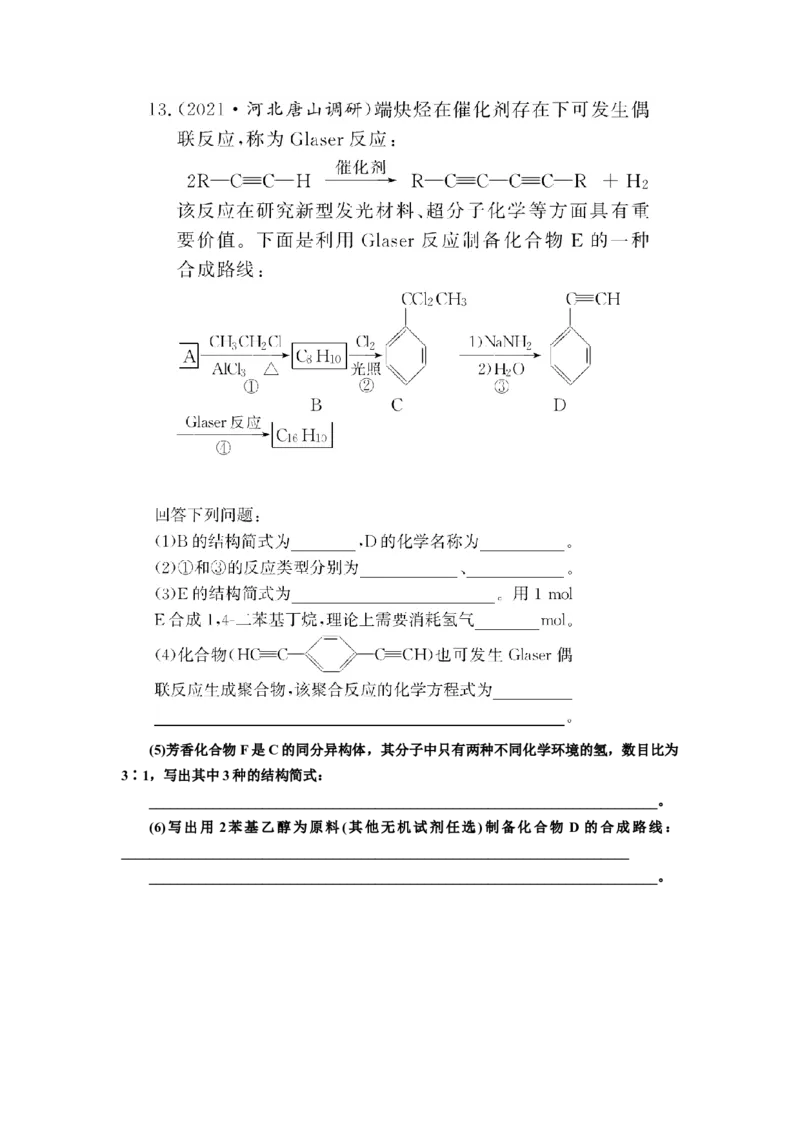 13.(2021·河北唐山调研)端炔烃在催化剂存在下可发生偶
联反应,称为 Glaser 反应:
2R—C≡C—H 催化剂 R—C≡C—C≡C—R + H₂
该反应在研究新型发光材料、超分子化学等方面具有重
要价值。下面是利用 Glaser 反应制备化合物 E 的一种
合成路线:
CCl₂CH₃ C≡CH
A CH₃CH₂Cl AlCl₃ △ ① C₈H₁₀ Cl₂ 光照 ② 1)NaNH₂ 2)H₂O ③
B C D
Glaser 反应 ④ C₁₆H₁₀
回答下列问题:
(1)B 的结构简式为________,D 的化学名称为__________。
(2)①和③的反应类型分别为____________、____________。
(3)E 的结构简式为________________________。用 1 mol
E 合成 1,4-二苯基丁烷,理论上需要消耗氢气________mol。
(4)化合物(HC≡C— —C≡CH)也可发生 Glaser 偶
联反应生成聚合物,该聚合反应的化学方程式为__________
____________________________________________________。
(5)芳香化合物 F 是 C 的同分异构体，其分子中只有两种不同化学环境的氢，数目比为
3∶1，写出其中 3 种的结构简式：
________________________________________________________________。
(6)写出用 2苯基乙醇为原料(其他无机试剂任选)制备化合物 D 的合成路线：
________________________________________________________________
________________________________________________________________。